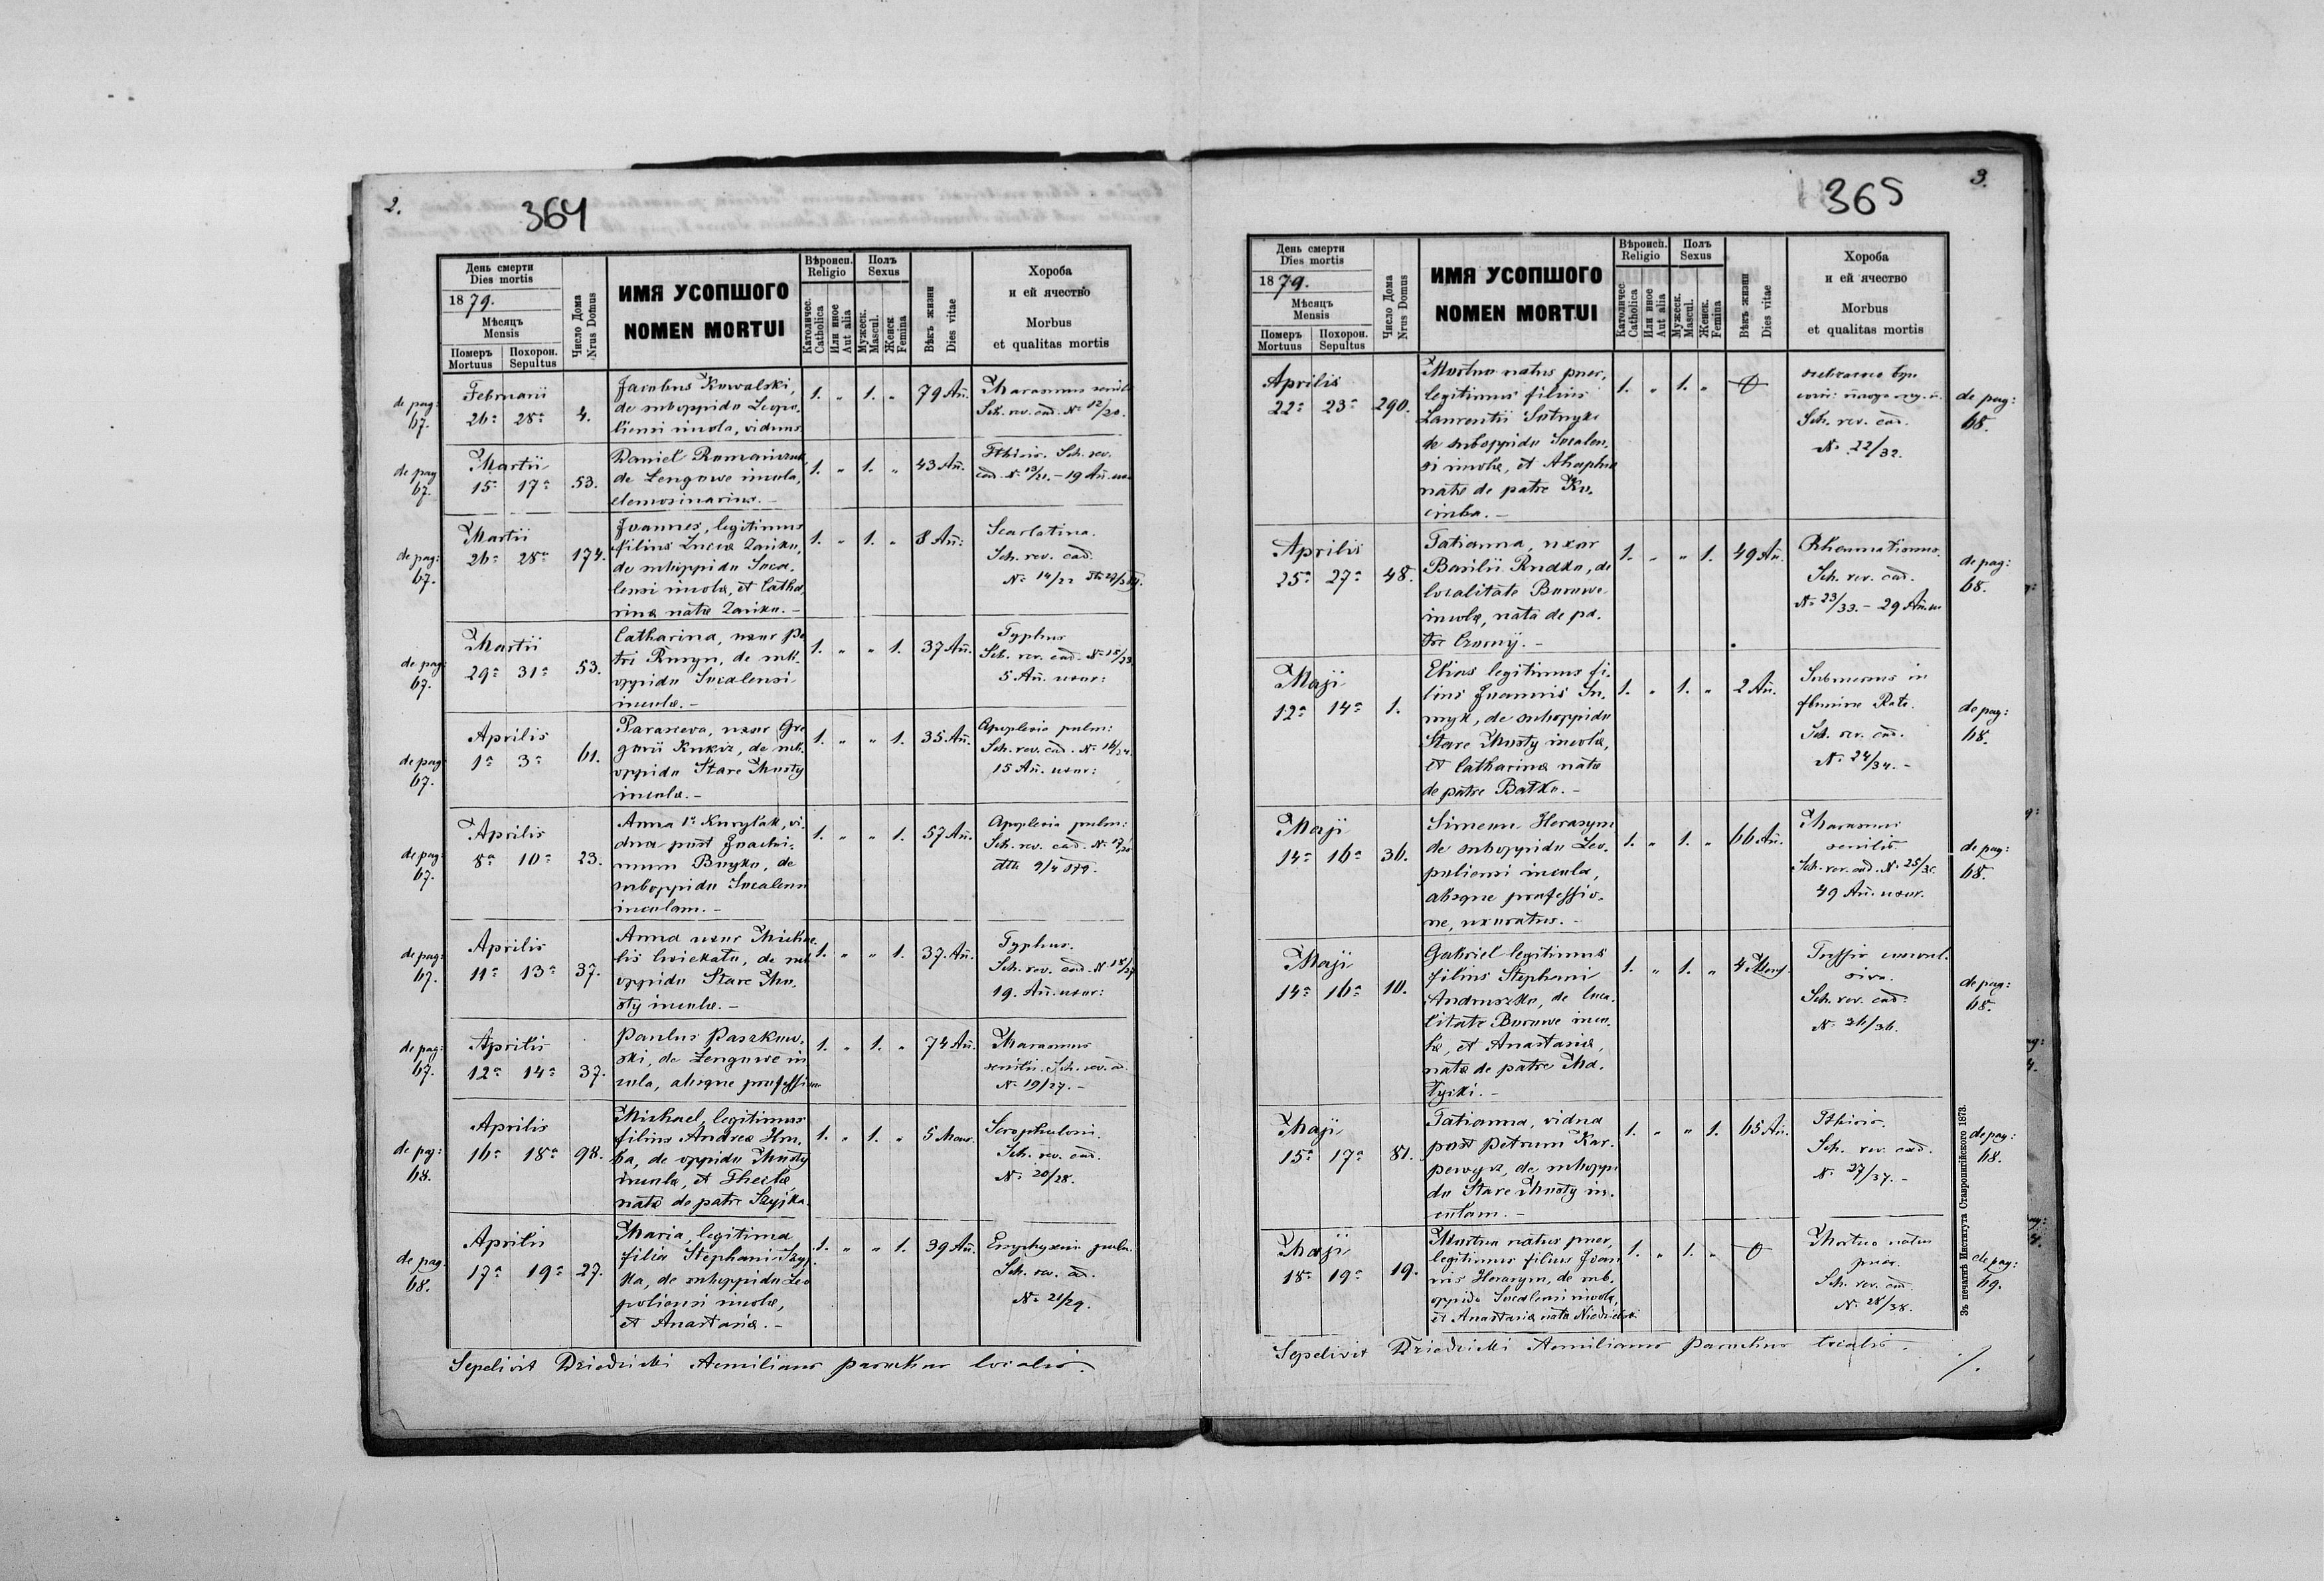 2.
364
День смерти
Dies mortis
1879.
Мѣсяць
Mensis
Померъ
Mortuus
Похорон.
Sepultus
Число Дома
Nrus Domus
ИМЯ УСОПШОГО
NOMEN MORTUI
Вѣроисп.
Religio
Католичес.
Catholica
Или иное
Aut alia
Полъ
Sexus
Мужеск.
Mascul.
Женск
Femina
Вѣкъ жизни
Dies vitae
Хороба
и ей ячество
Morbus
et qualitas mortis
de pag: 67.
Februarii
26ª 28ª 4.
Jacobus Kowalski,
de suboppido Leopo-
liensi incola, viduus
1. " 1. " 79 Añ.
Marasmus senilis
Sch. rev. cad. Nº 12/20.
de pag 67.
Martii
15ª 17ª 53.
Daniel Romaniczuk,
de Lengowe incola,
elemosinarius. –
1. " 1. " 43 Añ.
Fthisis. Sch. rev.
cad. Nº 13/21. – 19 Añ.
de pag: 67.
Martii
26ª 28ª 174.
Joannes, legitimus
filius Lucae Zariko,
de suboppido Soca-
lensi incolae, et Catha-
rinae natae Zariko. –
1. " 1. " 8 Añ:
Scarlatina.
Sch. rev. cad.
Nº 14/22
de pag: 67.
Martii
29ª 31ª 53.
Catharina, uxor Pe
tri de sub-
oppido Socalensi
incolae. –
1. " " 1. 37 Añ.
Typhus
Sch. rev. cad. Nº 15/23
5 Añ. uxor:
de pag 67.
Aprilis
1ª 3ª 61.
Parasceva, uxor Gre
gorii Kukiz, de sub-
oppido Stare Mosty
incolae. –
1. " " 1. 35 Añ.
Apoplexia pulm:
Sch. rev. cad. Nº 16/24.
15 Añ. uxor:
de pag: 67.
Aprilis
8ª 10ª 23.
Anna Kurylak, vi-
dua post Joachi-
mum Buyko, de
suboppido Socalensi
incolam. –
1. " " 1. 57 Añ.
Apoplexia pulm:
Sch. rev. cad. Nº
dtto 9/4 879.
de pag: 67.
Aprilis
11ª 13ª 37.
Anna uxor Michae-
lis de sub
oppido Stare Mo-
sty incolae. –
1. " " 1. 37. Añ.
Typhus.
Sch. rev. cad. Nº
19. Añ. uxor:
de pag: 67.
Aprilis
12ª 14ª 37.
Paulus Paszkow-
ski, de Lengowe in
cola, absque professione
1. " 1. " 74 Añ.
Marasmus
senilis. Sch. rev. cad.
Nº 19/27. –
de pag: 68.
Aprilis
16ª 18ª 98.
Michael, legitimus
filius Andreae
de oppido Mosty
incolae, et Theclae
natae de patre Szyjka.
1. " 1. " 5 Mens.
Sch. rev. cad.
Nº 20/28.
de pag 68.
Aprilis
17ª 19ª 27.
Maria, legitima
filia Stephani Szyj-
ka, de suboppido Leo
poliensi incolae,
et Anastasiae. –
1. " " 1. 39 Añ.
pulm.
Sch. rev. cad.
Nº 21/29.
Sepelivit Dziedzicki Aemilianus parochus localis.
3.
365
День смерти
Dies mortis
1879.
Мѣсяцъ
Mensis
Померъ
Mortuus
Похорон.
Sepultus
Число Дома
Nrus Domus
ИМЯ УСОПШОГО
NOMEN MORTUI
Вѣроисп.
Religio
Католичес
Catholica
Или иное
Aut alia
Полъ
Sexus
Мужеск.
Mascul.
Женск.
Femina
Вѣкъ жизни
Dies vitae
Хороба
и ей ячество
Morbus
et qualitas mortis
Aprilis
22ª 23ª 290.
Mortuo natus puer,
legitimus filius
Laurentii Sotnyk
de suboppido Socalen-
si incolae, et Ahaphia
natae de patre Ko-
cimba. –
1. " 1. "
Sch. rev. cad.
Nº 22/32.
de pag: 68.
Aprilis
25ª 27ª 48.
Tatianna, uxor
Basilii Rudko, de
localitate Borowe
incolae, nata de pa-
tre Czornij. –
1. " " 1. 49 Añ.
Rheumatismus.
Sch. rev. cad.
Nº 23/33. – 29 Añ.
de pag: 68.
Maji
12ª 14ª 1.
Elias legitimus fi-
lius Joannis
de suboppido
Stare Mosty incolae,
et Catharinae natae
de patre Batko. –
1. " 1. " 2 Añ.
Submersus in
flumine Rata.
Sch. rev. cad.
Nº 24/34. –
de pag: 68.
Maji
14ª 16ª 36.
Simeon Herasym
de suboppido Leo-
poliensi incola,
absque professio-
ne, uxoratus. –
1. " 1. " 66 Añ.
Marasmus
senilis.
Sch. rev. cad. Nº 25/35.
49 Añ. uxor.
de pag: 68.
Maji
14ª 16ª 10.
Gabriel legitimus
filius Stephani
Andruszko, de loca-
litate Borowe inco-
lae, et Anastasiae,
natae de patre Ma-
1. " 1. " 4 Mens.
Tussis convul-
siva.
Sch. rev. cad.
Nº 26/36.
de pag: 68.
Maji
15ª 17ª 81.
Tatianna, vidua
post Petrum Kar-
de suboppi
do Stare Mosty in-
colam. –
1. " " 1. 65 Añ.
Fthisis.
Sch. rev. cad.
Nº 27/37. –
de pag: 68.
Maji
18ª 19ª 19.
Mortuo natus puer,
legitimus filius Joan
nis Herasym, de sub-
oppido Socalensi incolae,
et Anastasiae nata
1. " 1. "
Mortuo natus
puer.
Sch. rev. cad.
Nº 28/38.
de pag: 69.
Sepelivit Dziedzicki Aemilianus parochus localis.
Зъ печатнѣ Института Ставропигійского 1873.